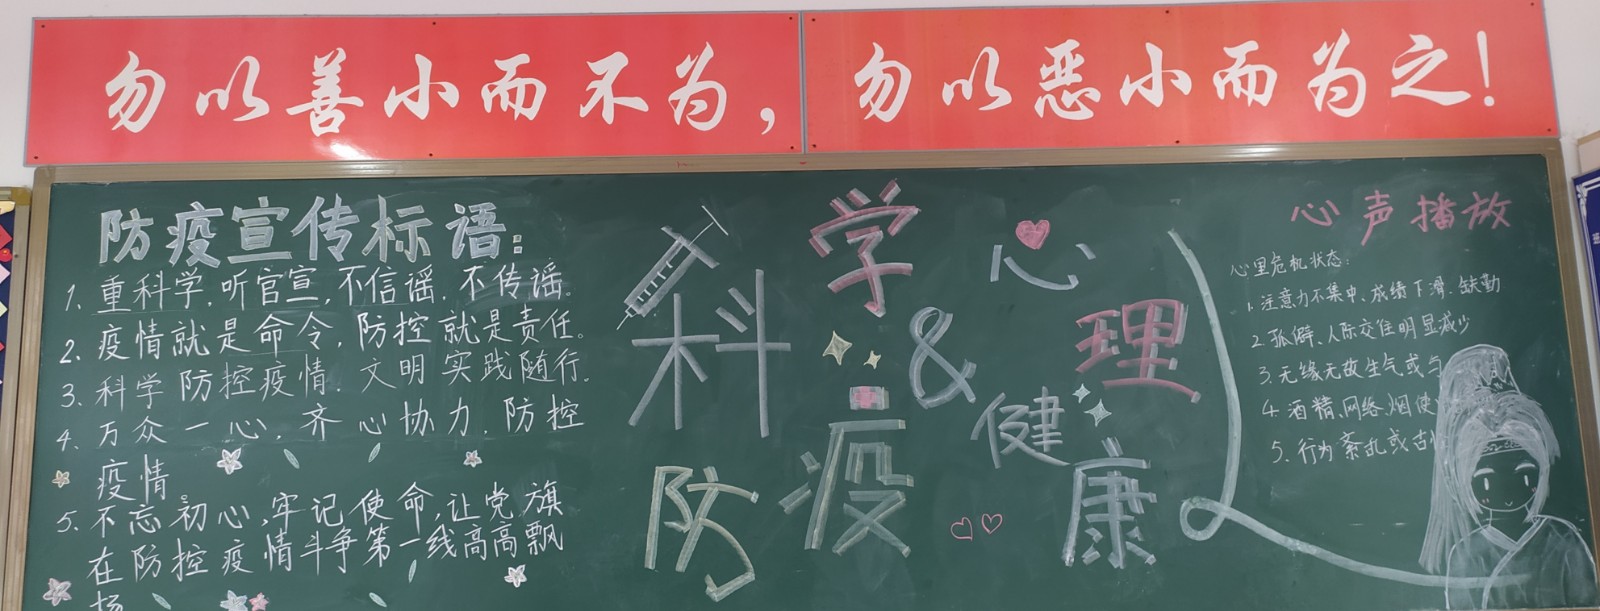 勿以善小而不为，勿以恶小而为之！
防疫宣传标语：
1. 重科学.听官宣,不信谣.不传谣.
2. 疫情就是命令,防控就是责任.
3. 科学防控疫情.文明实践随行.
4. 万众一心.齐心协力.防控
疫情。
5. 不忘初心,牢记使命,让党旗
在防控疫情斗争第一线高高飘
扬
科学
防疫
&
心理
健康
心声播放
心里危机状态：
1. 注意力不集中、成绩下滑.缺勤
2. 孤僻、人际交往明显减少
3. 无缘无故生气或与
4. 酒精、网络.烟使
5. 行为紊乱或古